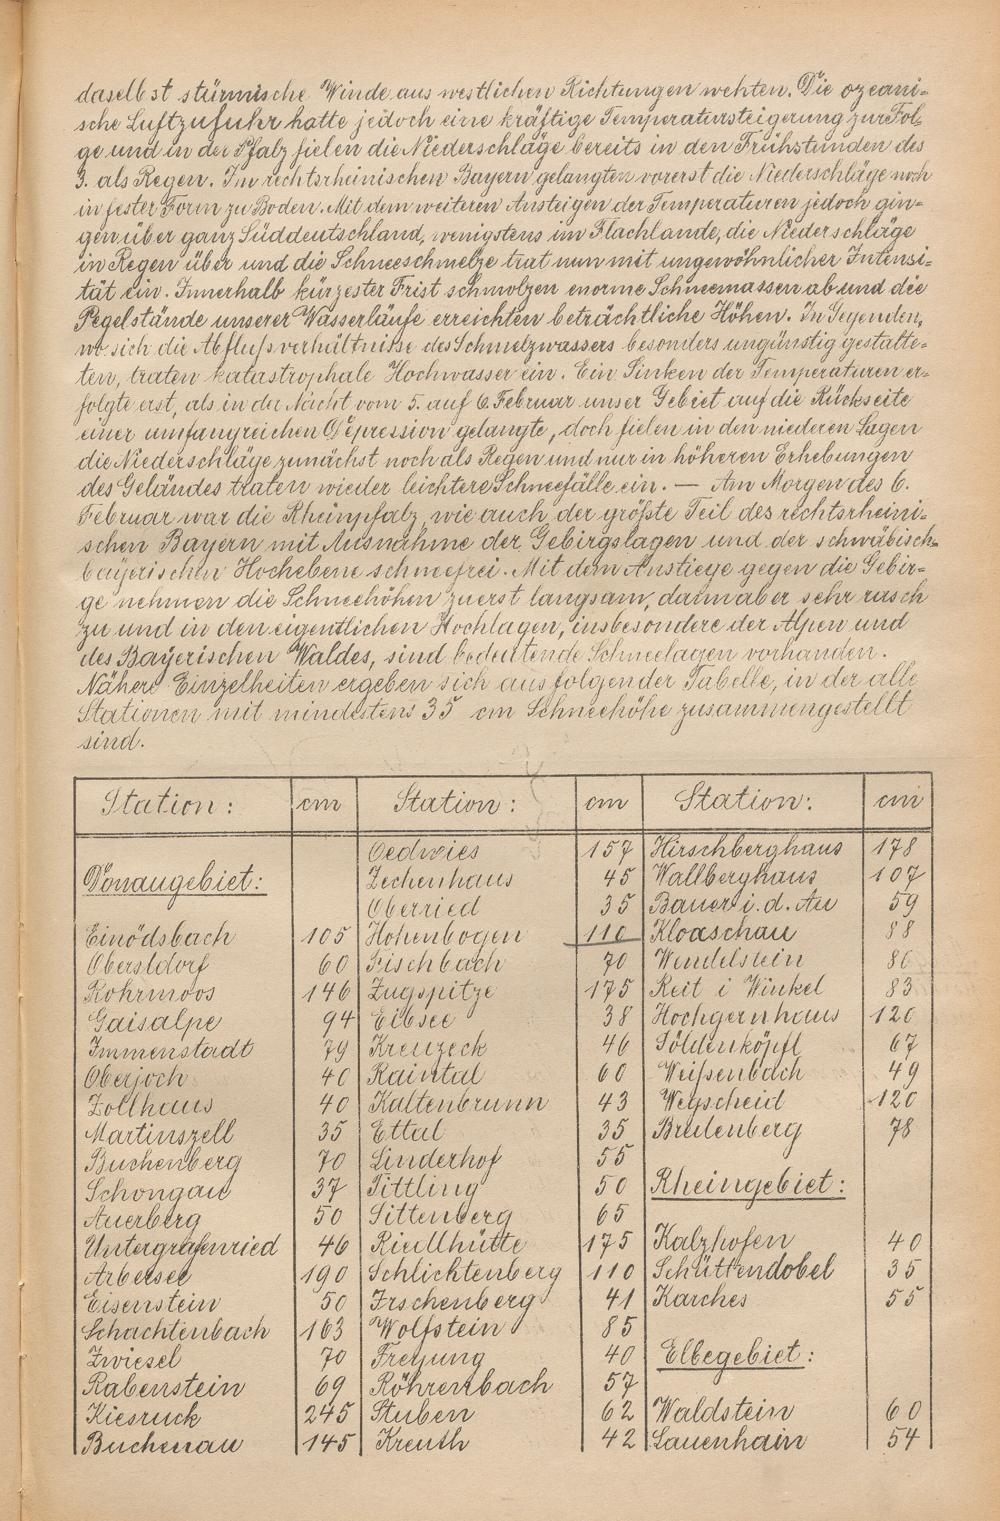 daselbst stürmische Winde aus westlichen Richtungen wehten. Die ozeani-
sche Luftzufuhr hatte jedoch eine kräftige Temperatursteigerung zur Fol-
ge und in der Pfalz fielen die Niederschläge bereits in den Frühstunden des
3. als Regen. Im rechtsrheinischen Bayern gelangten vorerst die Niederschläge noch
in fester Form zu Boden. Mit dem weiteren Ansteigen der Temperaturen jedoch gin-
gen über ganz Süddeutschland, wenigstens im Flachlande, die Niederschläge
in Regen über und die Schneeschmelze trat nun mit ungewöhnlicher Intensi-
tät ein. Innerhalb kürzester Frist schmolzen enorme Schneemassen ab und die
Pegelstände unserer Wasserläufe erreichten beträchtliche Höhen. In Gegenden,
wo sich die Abflußverhältnisse des Schmelzwassers besonders ungünstig gestalte-
ten, traten katastrophale Hochwasser ein. Ein Sinken der Temperaturen er-
folgte erst, als in der Nacht vom 5. auf 6. Februar unser Gebiet auf die Rückseite
einer umfangreichen Depression gelangte, doch fielen in den niederen Lagen
die Niederschläge zunächst noch als Regen und nur in höheren Erhebungen
des Geländes traten wieder leichtere Schneefälle ein. — Am Morgen des 6.
Februar war die Rheinpfalz, wie auch der größte Teil des rechtsrheini-
schen Bayern mit Ausnahme der Gebirgslagen und der schwäbisch-
bayerischen Hochebene schneefrei. Mit dem Anstiege gegen die Gebir-
ge nehmen die Schneehöhen zuerst langsam, dann aber sehr rasch
zu und in den eigentlichen Hochlagen, insbesondere der Alpen und
des Bayerischen Waldes, sind bedeutende Schneelagen vorhanden.
Nähere Einzelheiten ergeben sich aus folgender Tabelle, in der alle
Stationen mit mindestens 35 cm Schneehöhe zusammengestellt
sind.
Station: cm Station: cm Station: cm
Oedwies 157 Hirschberghaus 178
Donaugebiet: Zechenhaus 45 Wallberghaus 107
Oberried 35 Bauer i. d. Au 59
Einödsbach 105 Hohenbogen 110 Kloaschau 88
Oberstdorf 60 Fischbach 70 Wendelstein 80
Rohrmoos 146 Zugspitze 175 Reit i Winkel 83
Gaisalpe 94 Eibsee 38 Hochgernhaus 120
Immenstadt 79 Kreuzeck 46 Söldenköpfl 67
Oberjoch 40 Raintal 60 Weißenbach 49
Zollhaus 40 Kaltenbrunn 43 Wegscheid 120
Martinszell 35 Ettal 35 Breitenberg 78
Buchenberg 70 Linderhof 55
Schongau 37 Tittling 50 Rheingebiet:
Auerberg 50 Sittenberg 65
Untergrafenried 46 Riedlhütte 175 Kalzhofen 40
Arbersee 190 Schlichtenberg 110 Schüttendobel 35
Eisenstein 50 Irschenberg 41 Karches 55
Schachtenbach 163 Wolfstein 85
Zwiesel 70 Freyung 40 Elbegebiet:
Rabenstein 69 Röhrenbach 57
Kiesruck 245 Stuben 62 Waldstein 60
Buchenau 145 Kreuth 42 Lauenhain 54